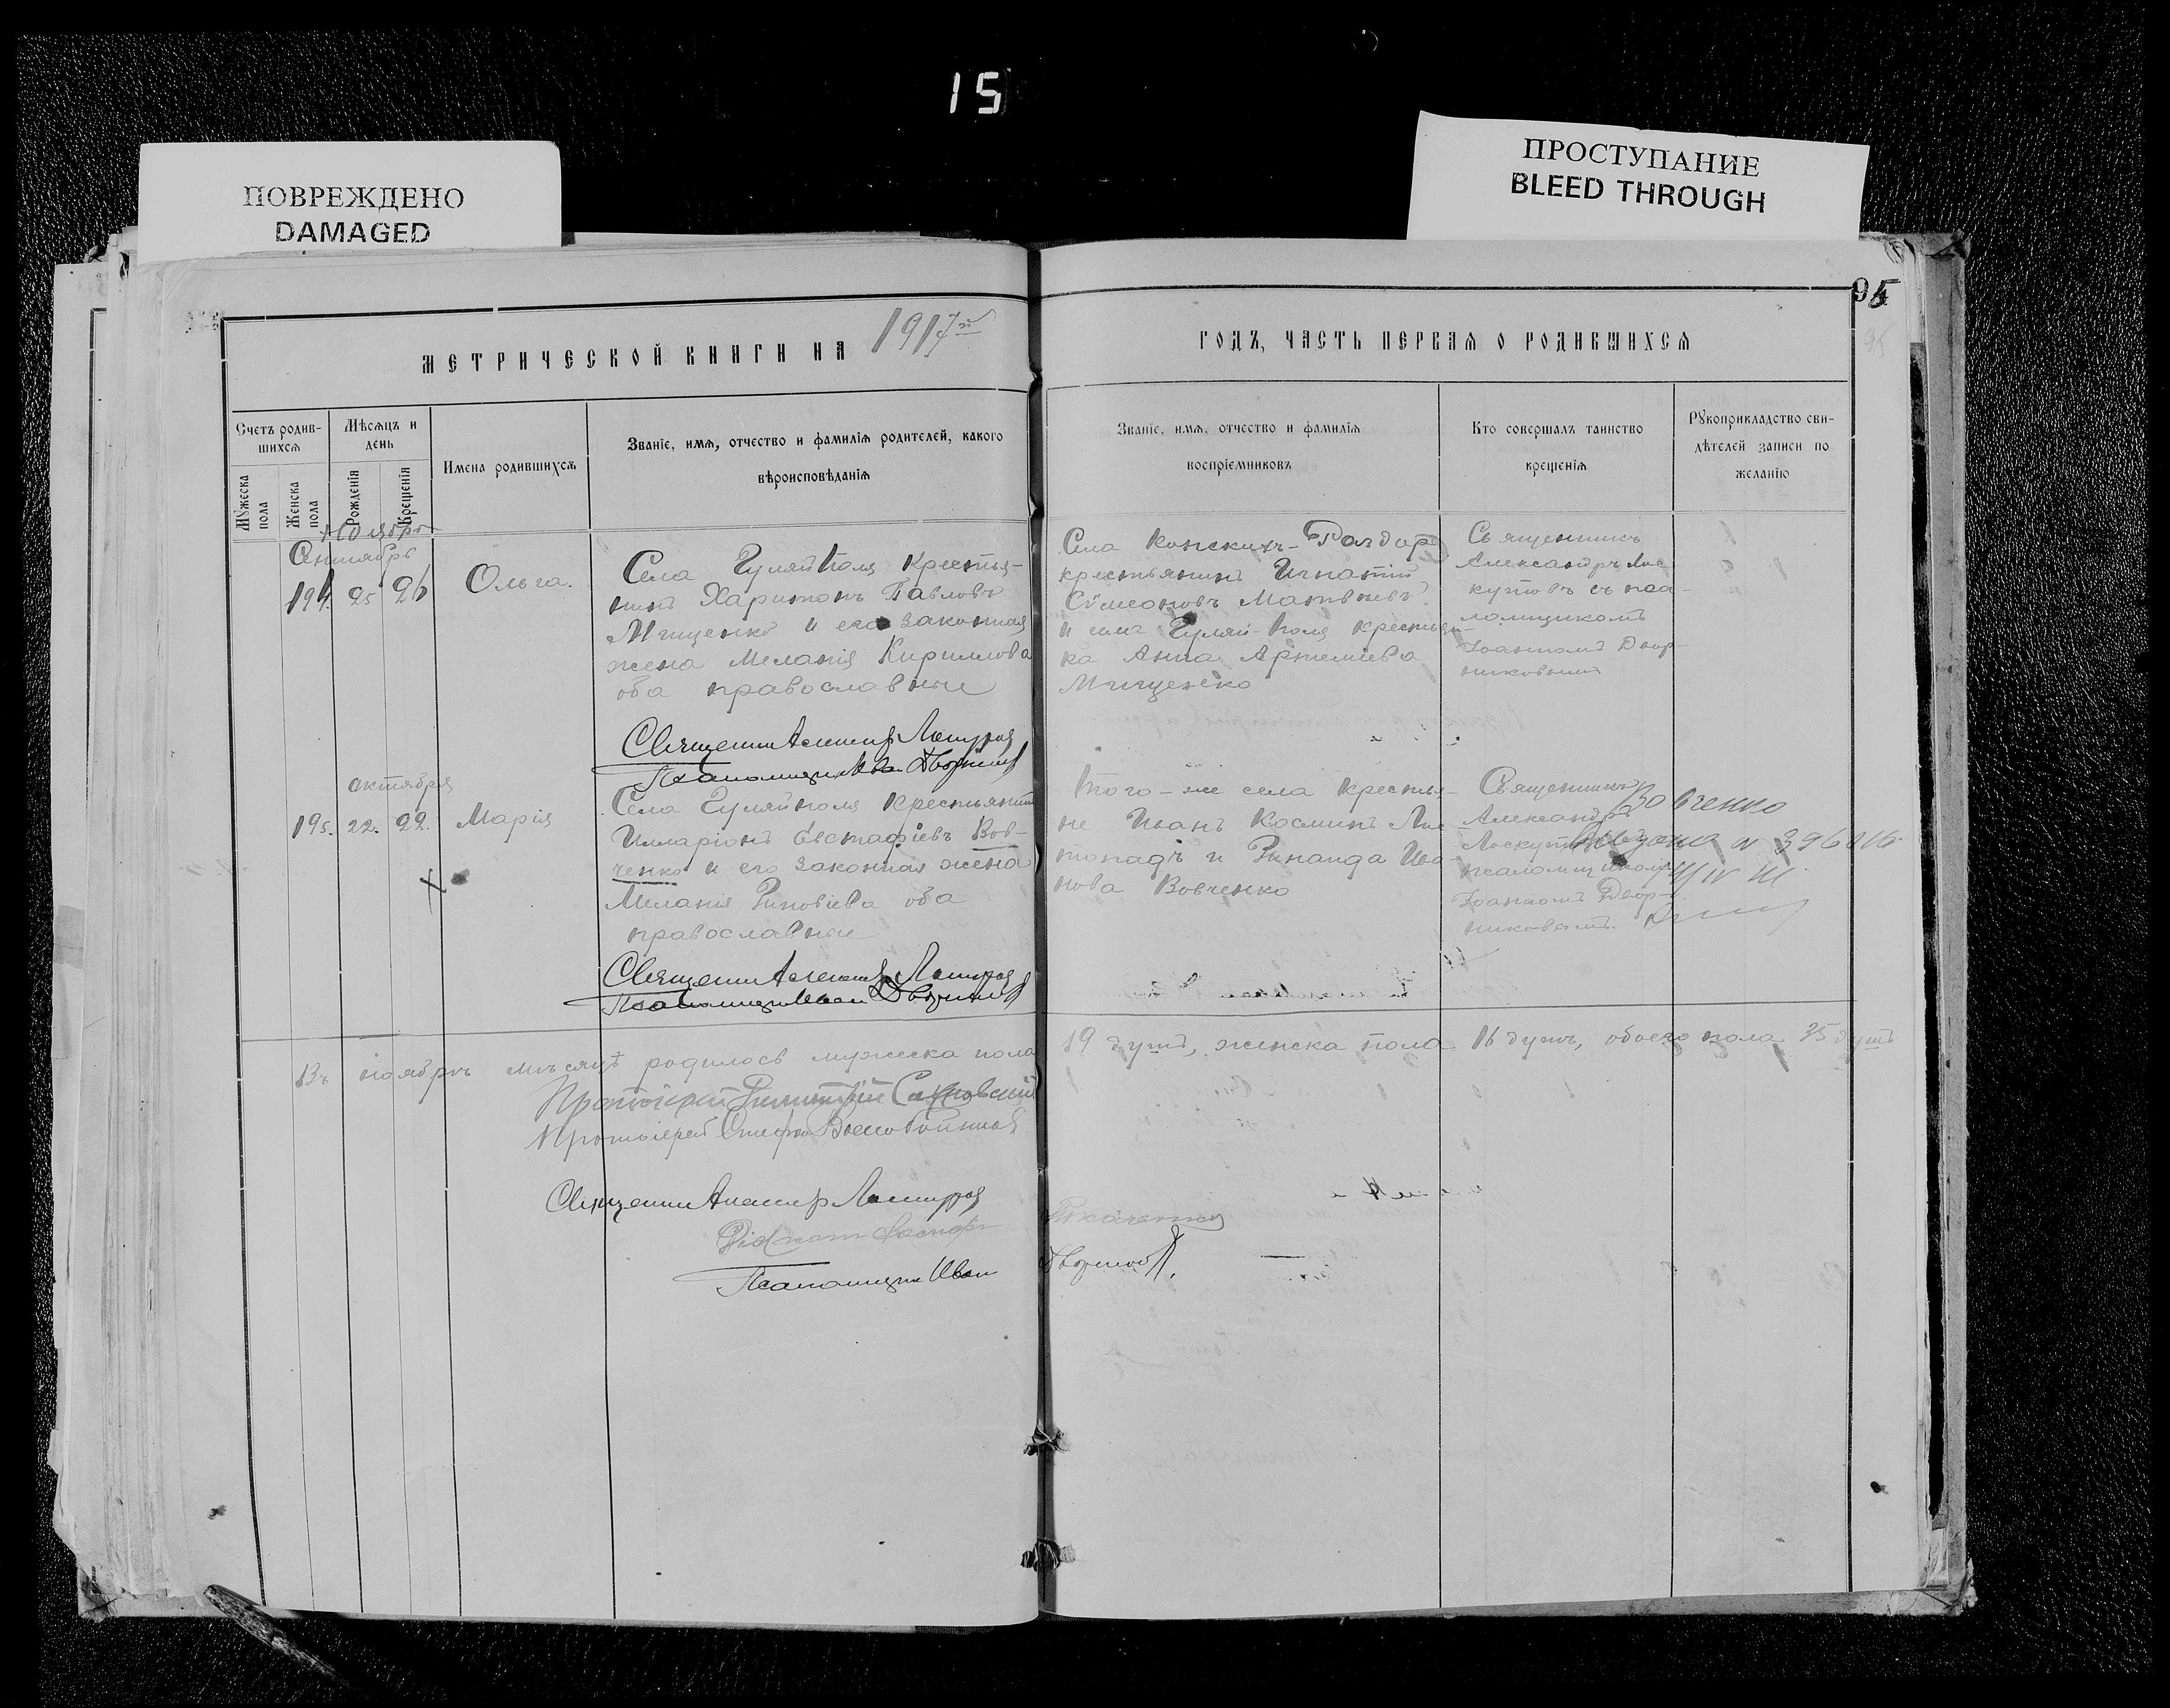 15
ПОВРЕЖДЕНО
DAMAGED
ПРОСТУПАНИЕ
BLEED THROUGH
95
МЕТРИЧЕСКОЙ КНИГИ НА 1917й
ГОДЪ, ЧАСТЬ ПЕРВАЯ О РОДИВШИХСЯ
95
Счетъ родив-
шихся
Мужеска
пола
Женска
пола
Мѣсяцъ и
день
Рожденія
Крещенія
Имена родившихся
Званіе, имя, отчество и фамилія родителей, какого
вѣроисповѣданія
Званіе, имя, отчество и фамилія
воспріемниковъ
Кто совершалъ таинство
крещенія
Рукоприкладство сви-
дѣтелей записи по
желанію
Ноябрь
Сентябрь
194. 25 26
Ольга.
Села Гуляйполя крестья-
нинъ Харитонъ Павловъ
Мищенко и его законная
жена Меланія Кириллова
оба православные
Села Конскихъ-Раздоръ
крестьянинъ Игнатій
Сѵмеоновъ Матвѣевъ
и села Гуляй-Поля крестьян-
ка Анна Артеміева
Мищенко
Священникъ
Александръ Лос-
кутовъ съ пса-
ломщикомъ
Іоанномъ Двор-
никовымъ
октября
195. 22. 22.
Марія
Села Гуляйполя крестьянинъ
Илларіонъ Евстафіевъ Вов-
ченко и его законная жена
Меланія Зиновіева оба
православные
Того-же села крестья-
не Иванъ Косминъ Лис-
топадъ и Зинаида Ива-
нова Вовченко
Священникъ
Александръ
Лоскутовъ
псаломщикомъ
Іоанномъ Двор-
никовымъ.
Вовченко
Въ ноябрѣ мѣсяцѣ родилось мужеска пола 19 душъ, женска пола 16 душъ, обоего пола 35 душъ
Протоіерей Димитрій
Протоіерей Стефанъ
Псаломщикъ Иван Дворников.